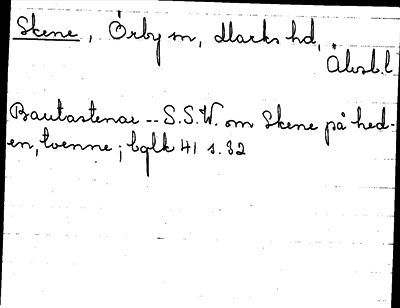 Skene, Örby sn, Marks hd,
Älvsb.l
Bautastenar -- S.S.W. om Skene på hed-
en, tvenne; bqlk 41 s. 32